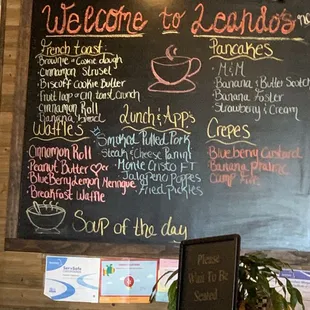 Welcome to Leando's
French toast
• Brownie & Cookie dough
• Cinnamon Strusel
• Biscoff Cookie Butter
• Fruit Loop or Cin. toast Crunch
• Cinnamon Roll
• Banana Bread
Waffles
• Cinnamon Roll
• Peanut Butter
• BlueBerry Lemon Meringue
• Breakfast Waffle
Lunch & Apps
Smoked Pulled Pork
Steak & Cheese Panini
Monte Cristo F.T
Jalapeño Poppes
Fried Pickles
Soup of the day
Pancakes
• M&M
• Banana & Butter Scotch
• Banana Foster
• Strawberry & Cream
Crepes
• Blueberry Custard
• Banana Praline
• Camp Fire
Please
Wait To Be
Seated